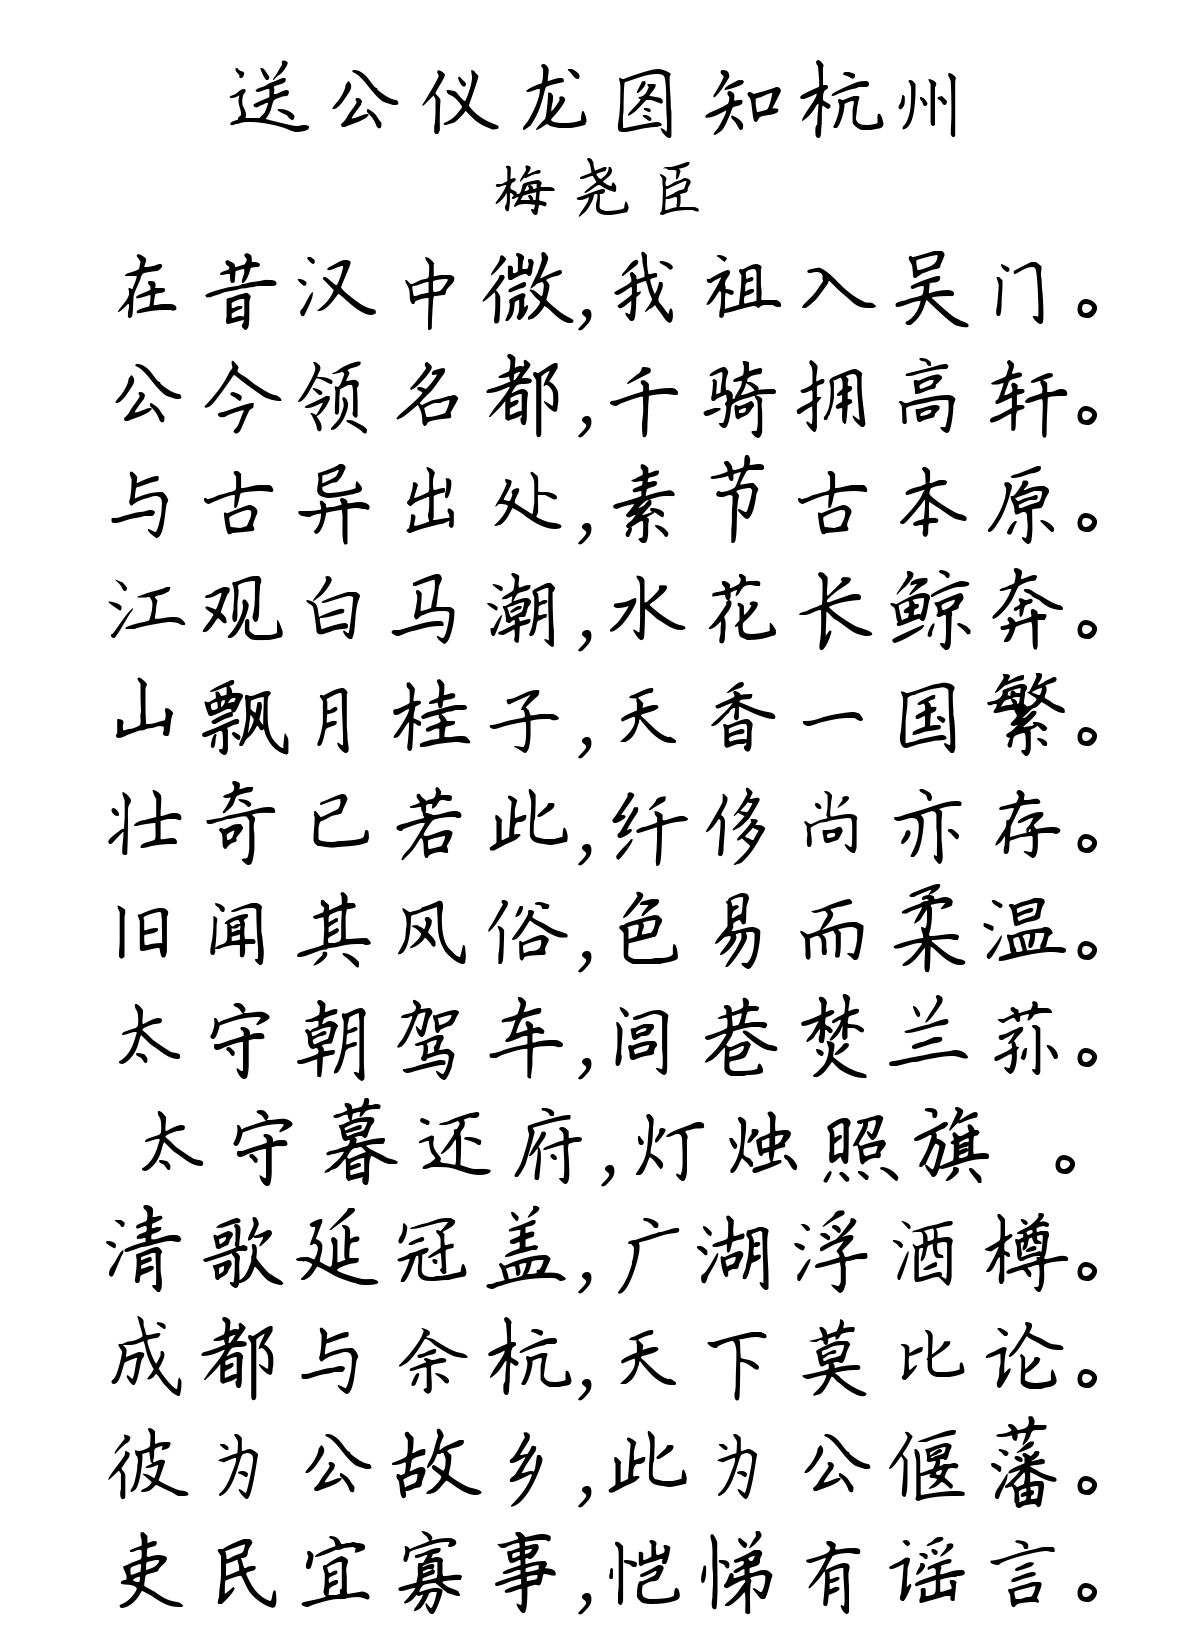 送公仪龙图知杭州
梅尧臣
在昔汉中微,我祖入吴门。
公今领名都,千骑拥高轩。
与古异出处,素节古本原。
江观白马潮,水花长鲸奔。
山飘月桂子,天香一国繁。
壮奇已若此,纤侈尚亦存。
旧闻其风俗,色易而柔温。
太守朝驾车,闾巷焚兰荪。
太守暮还府,灯烛照旗 。
清歌延冠盖,广湖浮酒樽。
成都与余杭,天下莫比论。
彼为公故乡,此为公偃藩。
吏民宜寡事,恺悌有谣言。